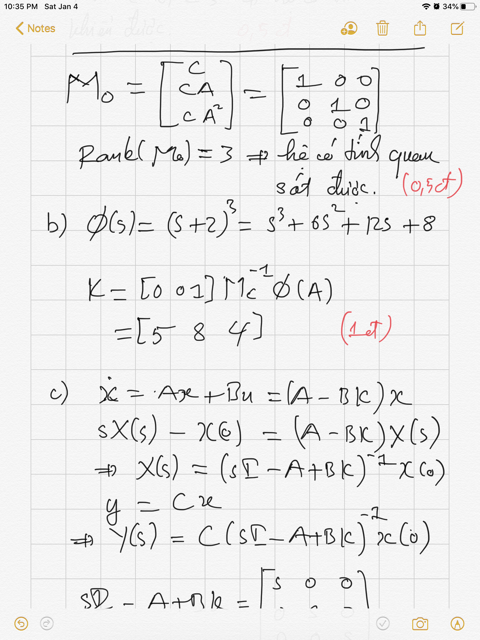 10:35 PM Sat Jan 4
34%
Notes
M₀ = [C; CA; CA²] = [1 0 0; 0 1 0; 0 0 1]
Rank(M₀) = 3 ⇒ hệ có tính quan
sát được. (0,5đ)
b) φ(s) = (s+2)³ = s³ + 6s² + 12s + 8
K = [0 0 1] Mc⁻¹ φ(A)
= [5 8 4] (1đ)
c) ẋ = Ax + Bu = (A - BK)x
sX(s) - x(0) = (A - BK)X(s)
⇒ X(s) = (sI - A + BK)⁻¹ x(0)
y = Cx
⇒ Y(s) = C(sI - A + BK)⁻¹ x(0)
sI - A + BK = [s 0 0